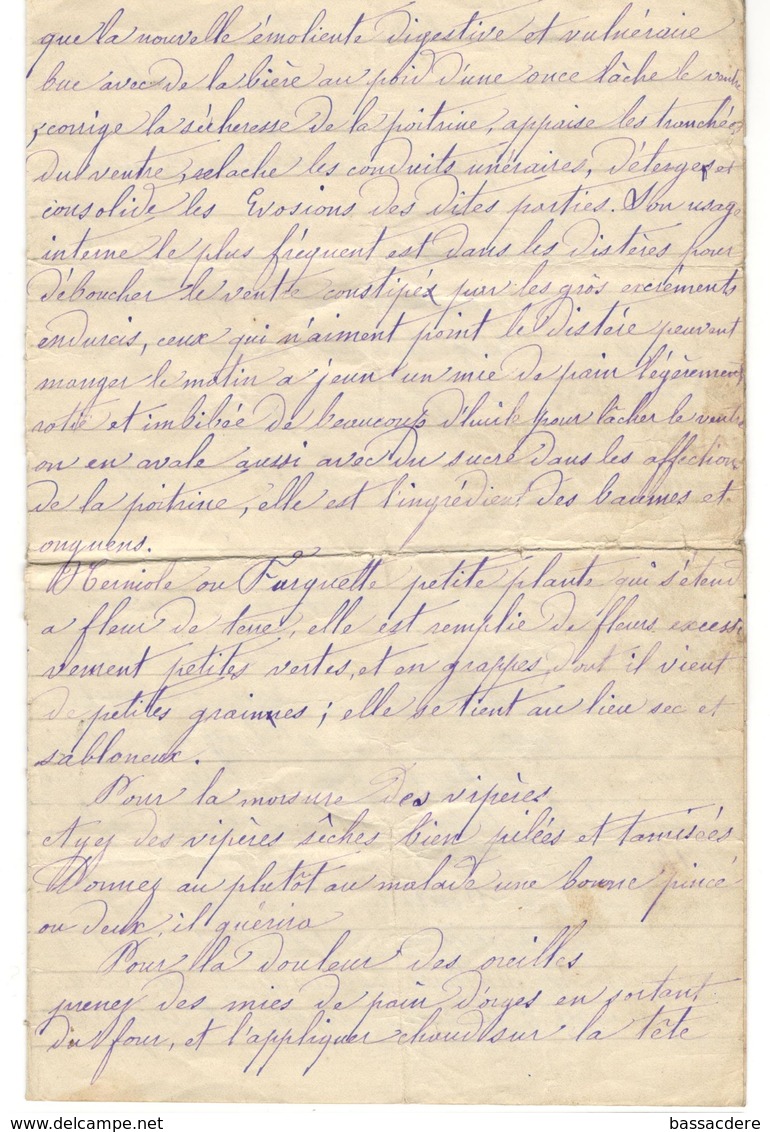 que la nouvelle émoliente digestive et vulnéraire
bue avec de la bière au poid d'une once lâche le ventre
corrige la sécheresse de la poitrine, appaise les tranchées
du ventre, relache les conduits unéraires, déterge et
consolide les Erosions des dites parties. Son usage
interne le plus fréquent est dans les distères pour
déboucher le ventre constipéx par les gròs excréments
endurcis, ceux qui n'aiment point le distére peuvent
manger le matin a jeun un mie de pain légèrement
rotie et imbibée de beaucoup d'huile pour lâcher le ventre
on en avale aussi avec du sucre dans les affections
de la poitrine, elle est l'ingrédient des baumes et
onguens.
Herniole ou Turquette petite plante qui s'étend
a fleur de terre, elle est remplie de fleurs excessi
vement petites vertes, et en grappes, dont il vient
de petites grainnes ; elle se tient au lieu sec et
sabloneux.
Pour la morsure des vipères
Ayez des vipères sèches bien pilées et tamisées
Donnez au plutôt au malade une bonne pincé
ou deux, il guérira
Pour la douleur des oreilles
prenez des mies de pain d'orges en sortant
du four, et l'appliquer chaud sur la tête
www.delcampe.net
bassacdere